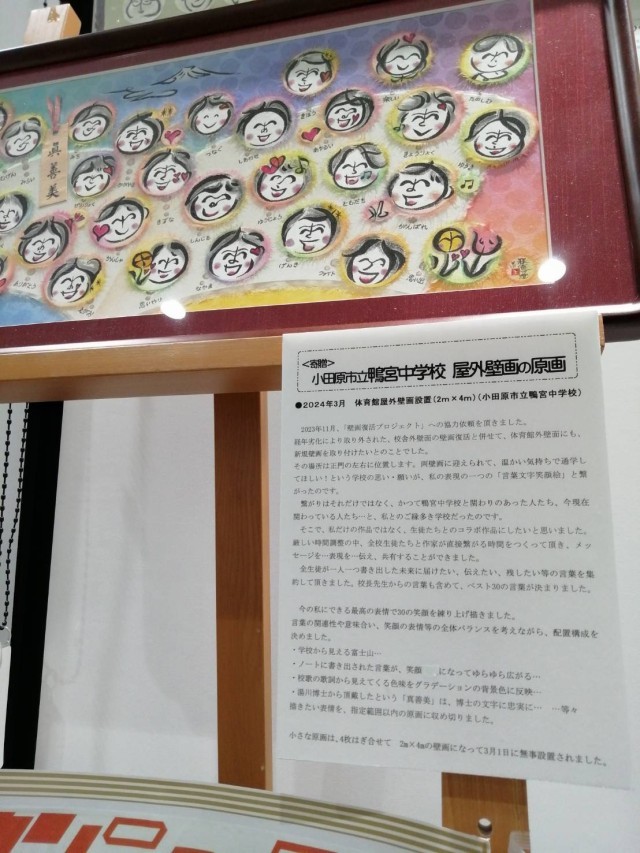 眞善美
つなぐ
しあわせ
きずな
しんじる
なやま
げんき
ともだち
思いやり
<寄贈>
小田原市立鴨宮中学校 屋外壁画の原画
●2024年3月 体育館屋外壁画設置(2m×4m)(小田原市立鴨宮中学校)
2023年11月、「壁画復活プロジェクト」への協力依頼を頂きました。
経年劣化により取り外された、校舎外壁面の壁画復活と併せて、体育館外壁面にも、
新規壁画を取り付けたいとのことでした。
その場所は正門の左右に位置します。両壁画に迎えられて、温かい気持ちで通学し
てほしい!という学校の思い・願いが、私の表現の一つの「言葉文字笑顔絵」と繋
がったのです。
繋がりはそれだけではなく、かつて鴨宮中学校と関わりのあった人たち、今現在
関わっている人たち…と、私とのご縁多き学校だったのです。
そこで、私だけの作品ではなく、生徒たちとのコラボ作品にしたいと思いました。
厳しい時間調整の中、全校生徒たちと作家が直接繋がる時間をつくって頂き、メッ
セージを…表現を…伝え、共有することができました。
全生徒が一人一つ書き出した未来に届けたい、伝えたい、残したい等の言葉を集
約して頂きました。校長先生からの言葉も含めて、ベスト30の言葉が決まりました。
今の私にできる最高の表情で30の笑顔を練り上げ描きました。
言葉の関連性や意味合い、笑顔の表情等の全体バランスを考えながら、配置構成を
決めました。
・学校から見える富士山…
・ノートに書き出された言葉が、笑顔 になってゆらゆら広がる…
・校歌の歌詞から見えてくる色味をグラデーションの背景色に反映…
・湯川博士から頂戴したという「眞善美」は、博士の文字に忠実に… …等々
描きたい表情を、指定範囲以内の原画に収め切りました。
小さな原画は、4枚はぎ合せて 2m×4mの壁画になって3月1日に無事設置されました。